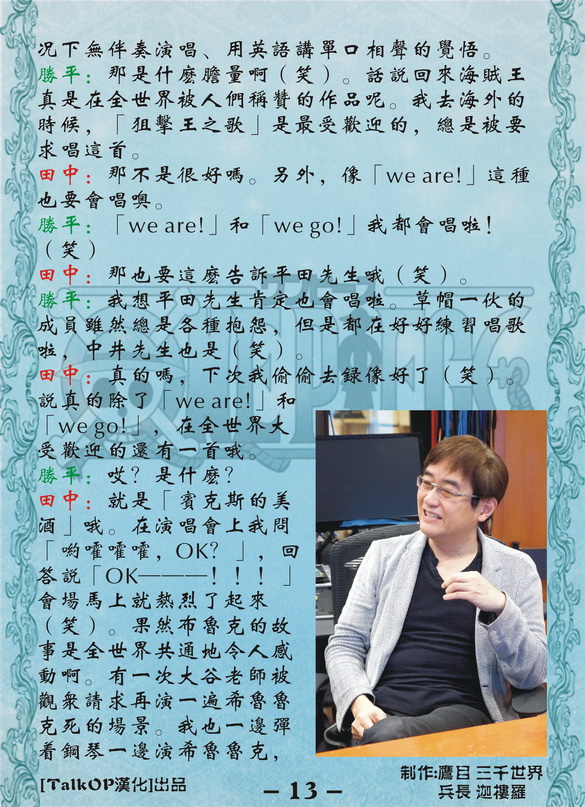 況下無伴奏演唱、用英語講單口相聲的覺悟。
勝平：那是什麼膽量啊（笑）。話說回來海賊王
真是在全世界被人們稱贊的作品呢。我去海外的
時候，「狙擊王之歌」是最受歡迎的，總是被要
求唱這首。
田中：那不是很好嗎。另外，像「we are!」這種
也要會唱噢。
勝平：「we are!」和「we go!」我都會唱啦！
（笑）
田中：那也要這麼告訴平田先生哦（笑）。
勝平：我想平田先生肯定也會唱啦。草帽一伙的
成員雖然總是各種抱怨，但是都在好好練習唱歌
啦，中井先生也是（笑）。
田中：真的嗎，下次我偷偷去録像好了（笑）。
說真的除了「we are!」和
「we go!」，在全世界大
受歡迎的還有一首哦。
勝平：哎？是什麼？
田中：就是「賓克斯的美
酒」哦。在演唱會上我問
「喲嚯嚯嚯，OK？」，回
答說「OK———！！！」
會場馬上就熱烈了起來
（笑）。果然布魯克的故
事是全世界共通地令人感
動啊。有一次大谷老師被
觀衆請求再演一遍希魯魯
克死的場景。我也一邊彈
着鋼琴一邊演希魯魯克，
[TalkOP漢化]出品
－13－
制作:鷹目 三千世界
兵長 迦樓羅